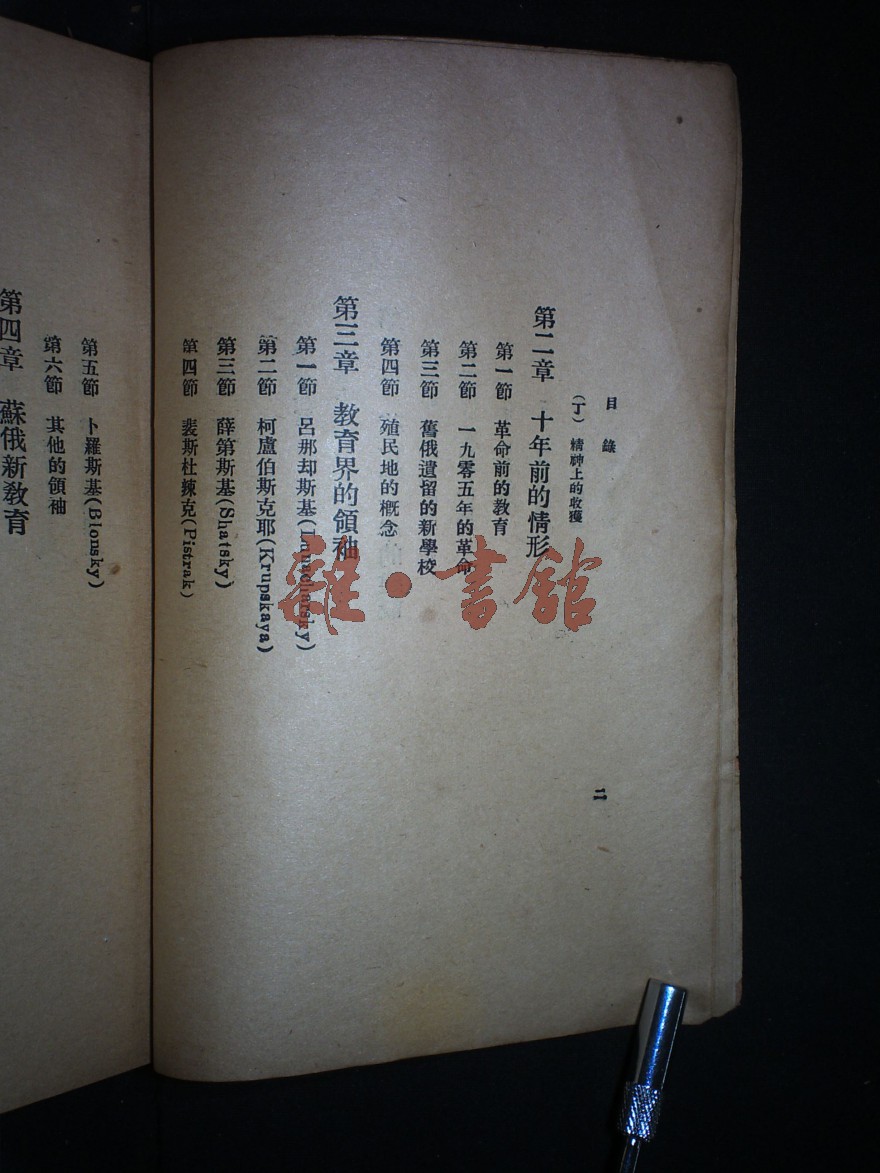 目錄
二
(丁) 精神上的收獲
第二章 十年前的情形
第一節 革命前的教育
第二節 一九零五年的革命
第三節 舊俄遺留的新學校
第四節 殖民地的概念
第三章 教育界的領袖
第一節 呂那却斯基(Lunacharsky)
第二節 柯盧伯斯克耶(Krupskaya)
第三節 薛第斯基(Shatsky)
第四節 裴斯杜揀克(Pistrak)
第五節 卜羅斯基(Blonsky)
第六節 其他的領袖
第四章 蘇俄新教育
雜·書館